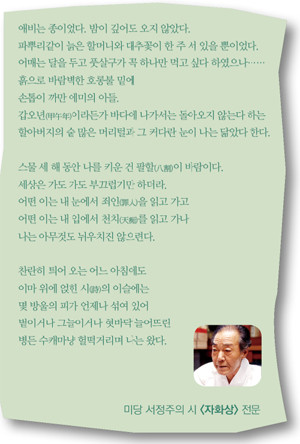 애비는 종이었다. 밤이 깊어도 오지 않았다.
파뿌리같이 늙은 할머니와 대추꽃이 한 주 서 있을 뿐이었다.
어매는 달을 두고 풋살구가 꼭 하나만 먹고 싶다 하였으나……
흙으로 바람벽한 호롱불 밑에
손톱이 까만 에미의 아들.
갑오년(甲午年)이라든가 바다에 나가서는 돌아오지 않는다 하는
할아버지의 숱 많은 머리털과 그 커다란 눈이 나는 닮았다 한다.
스물 세 해 동안 나를 키운 건 팔할(八割)이 바람이다.
세상은 가도 가도 부끄럽기만 하더라.
어떤 이는 내 눈에서 죄인(罪人)을 읽고 가고
어떤 이는 내 입에서 천치(天痴)를 읽고 가나
나는 아무것도 뉘우치진 않으련다.
찬란히 틔어 오는 어느 아침에도
이마 위에 얹힌 시(詩)의 이슬에는
몇 방울의 피가 언제나 섞여 있어
볕이거나 그늘이거나 혓바닥 늘어뜨린
병든 수캐마냥 헐떡거리며 나는 왔다.
미당 서정주의 시 <자화상> 전문